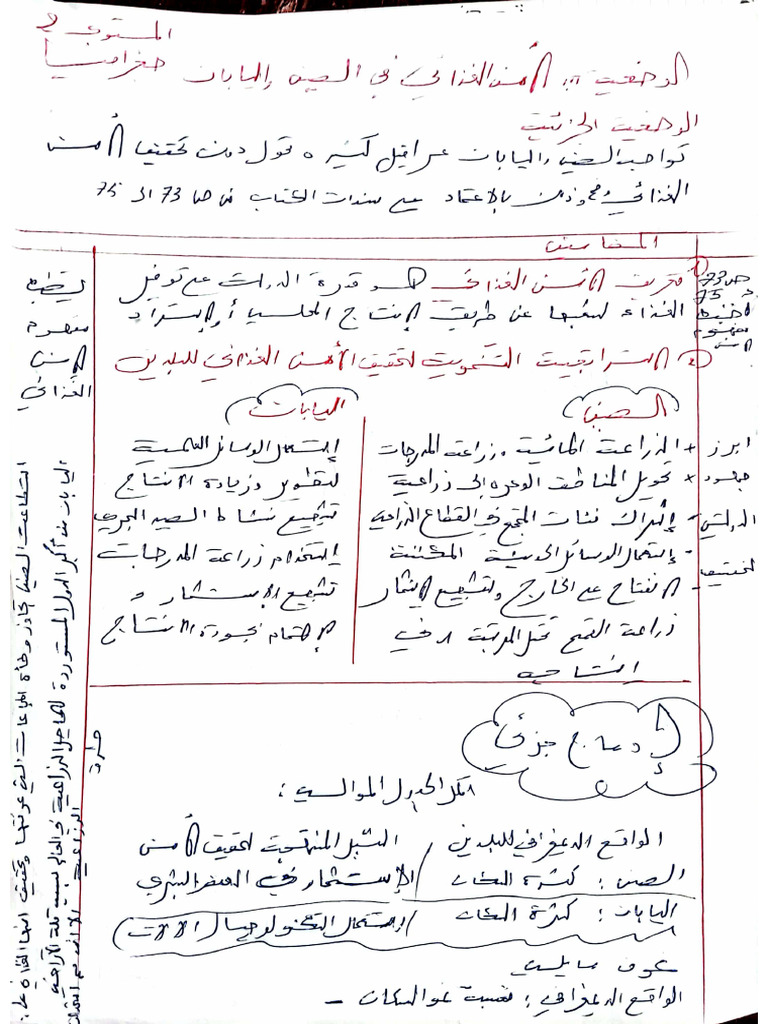 المستوى 2
جغرافيا
الوضعية 01: الأمن الغذائي في الصين واليابان
الوضعية الجزئية
تواجه الصين واليابان عراقيل كثيرة تحول دون تحقيق الأمن
الغذائي بالإعتماد على سندات الكتاب من ص 73 الى 75
المضامين
ص 73
75
مفهوم
الأمن
1 تعريف الأمن الغذائي هو قدرة الدولة على توفير
الغذاء لشعبها عن طريق الإنتاج المحلي أو الإستراد
2 الاستراتيجية التنموية لتحقيق الأمن الغذائي للبلدين
مفهوم
الأمن
الغذائي
ابرز
جهود
الدولتين
لتحقيق
الصين
+ الزراعة المائية وزراعة المدرجات
× تحويل المناطق الوعرة الى زراعية
- إشراك فئات المجتمع في القطاع الزراعي
- إستعمال الوسائل الحديثة المكننة
- الانفتاح على الخارج وتشجيع الإستثمار
زراعة القمح تحتل المرتبة في
إنتاجه
اليابان
إستعمال الوسائل العلمية
لتطوير وزيادة الانتاج
تشجيع نشاط الصيد البحري
إستخدام زراعة المدرجات
تشجيع الاستثمار و
الإهتمام بجودة الانتاج
استطاعت الصين تجاوز وطأة المجاعات التي عرفتها وتحقيق
اليابان من أكبر الدول المستوردة للمحاصيل الزراعية في العالم بسبب قلة الأراضي
الزراعية
إدماج جزئي
أكمل الجدول الموالي:
الواقع الديمغرافي للبلدين / السبل المنتهجة لتحقيق الأمن
الصين: كثرة السكان / الإستثمار في العنصر البشري
اليابان: كثرة السكان / إستعمال التكنولوجيا (الآلات)
عرف مايلي
الواقع الديمغرافي: نسبة نمو السكان -